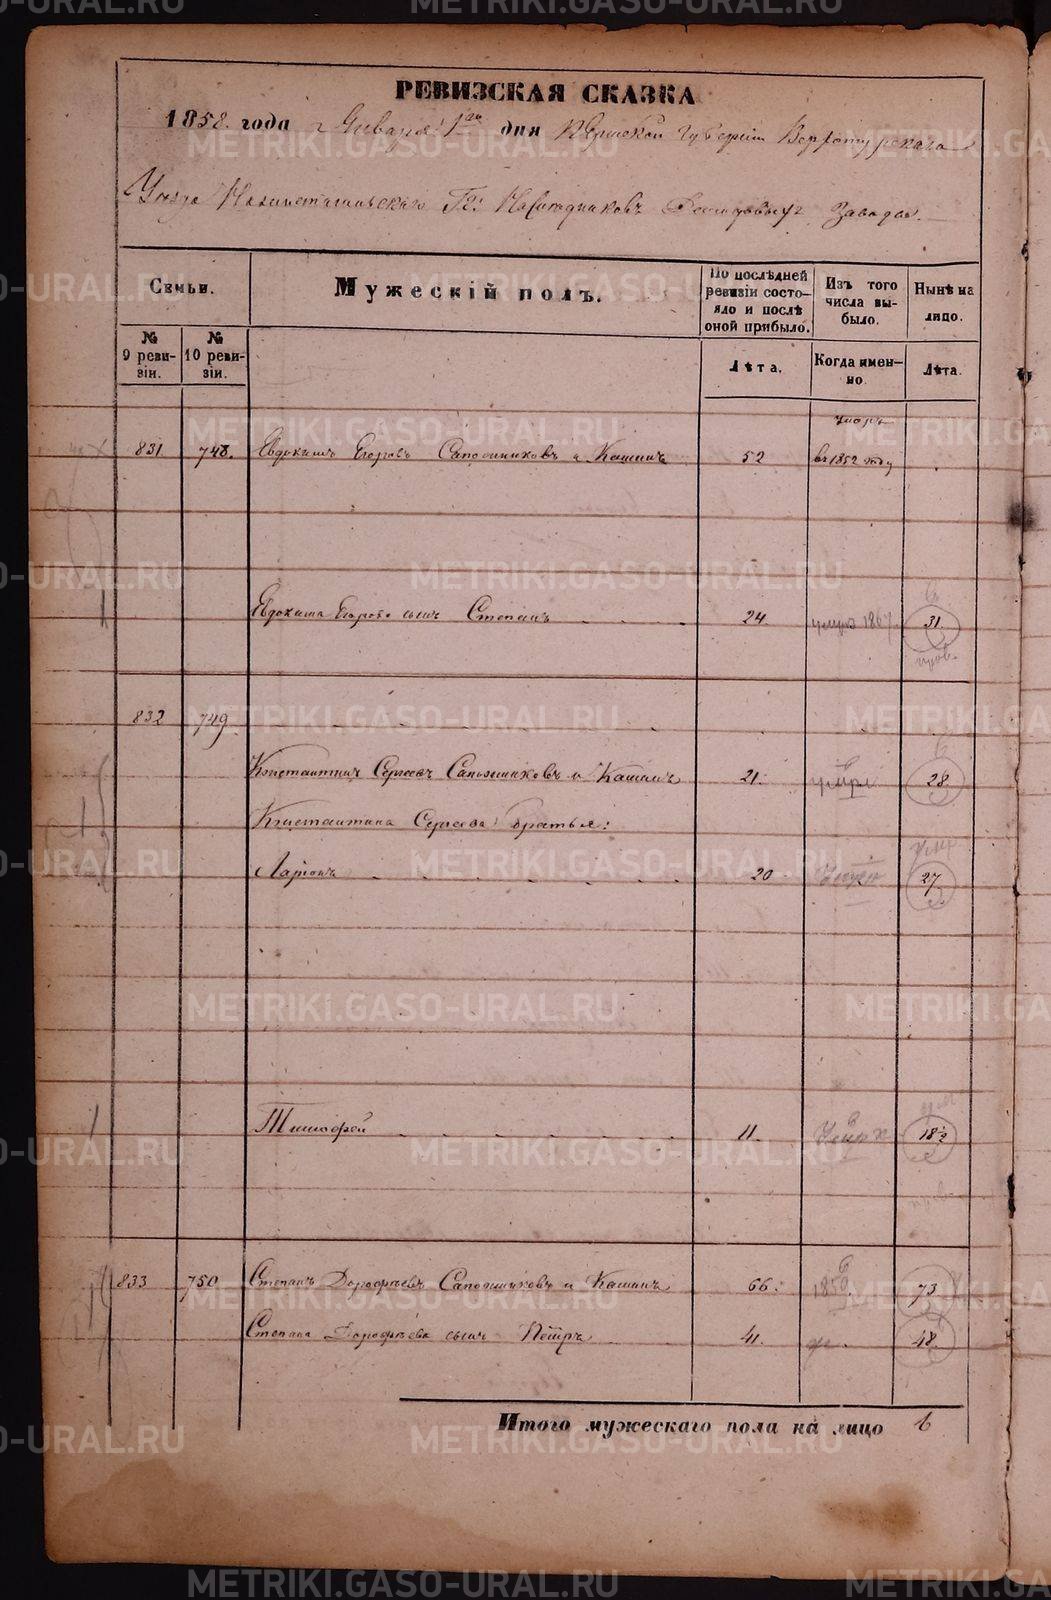 РЕВИЗСКАЯ СКАЗКА
1858. года Января 1го дня Пермской Губерніи Верхотурскаго
Уѣзда Нижнетагильскаго Гг: Наслѣдниковъ Демидовыхъ Завода.
Семьи.
Мужескій полъ.
По послѣдней ревизіи состо-яло и послѣ оной прибыло.
Изъ того числа вы-было.
Нынѣ на лицо.
№ 9 реви-зіи.
№ 10 реви-зіи.
Лѣта.
Когда имен-но.
Лѣта.
умеръ
831 748. Евдокимъ Егоровъ Сапожниковъ и Кашинъ 52 въ 1852 году
Евдокима Егорова сынъ Степанъ 24 умеръ 1867. 31.
832 749
Константинъ Сергеевъ Сапожниковъ и Кашинъ 21. умеръ 28
Константина Сергеева братья:
Ларіонъ 20 27
Тимофей 11. 18½
833 750 Степанъ Дорофѣевъ Сапожниковъ и Кашинъ 66: 1859 73
Степана Дорофѣева сынъ Петръ 41. у. 48.
Итого мужескаго пола на лицо 6
METRIKI.GASO-URAL.RU